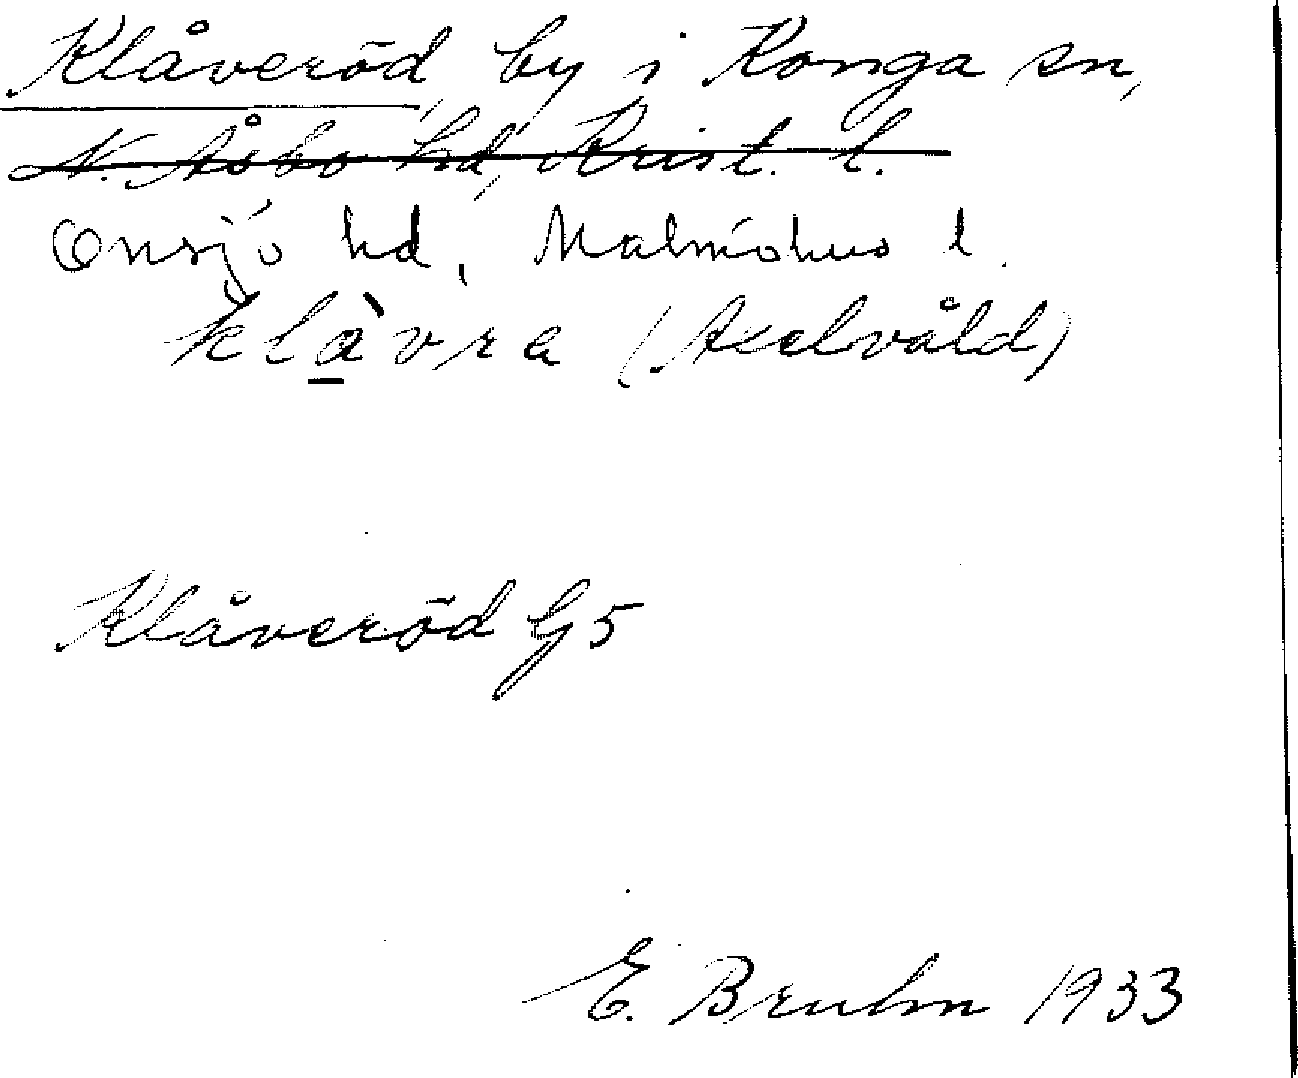 Klåveröd, by i Konga sn,
N. Åsbo hd, Krist. l.
Onsjö hd, Malmöhus l.
klàvra (Axelvåld)
Klåveröd G5
E. Bruhn 1933